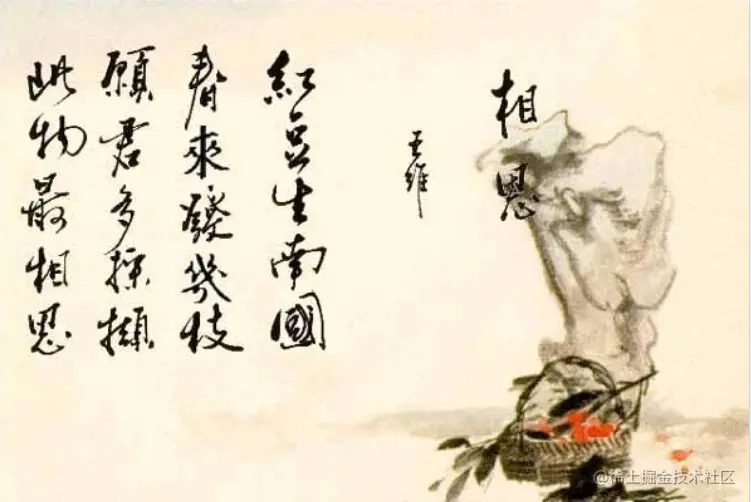 相思
王維
紅豆生南國
春來發幾枝
願君多採擷
此物最相思
@稀土掘金技术社区